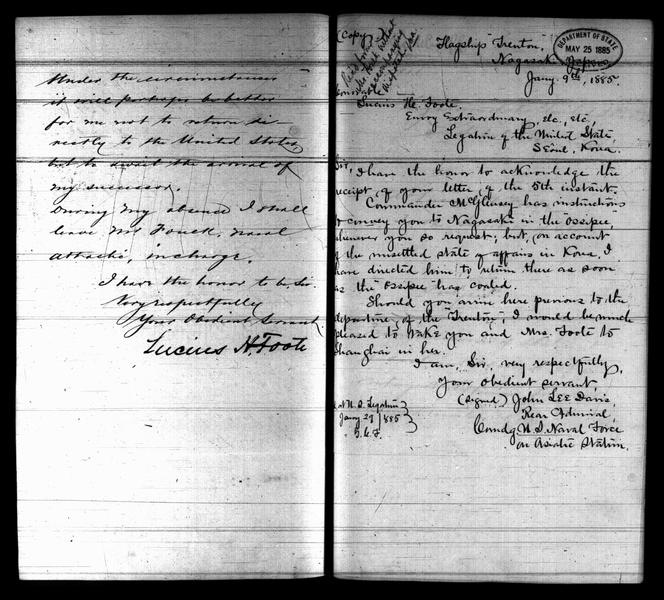 Under the circumstances
it will perhaps be better
for me not to return di-
rectly to the United States
but to await the arrival of
my successor.
During my absence I shall
leave Mr Foulk, naval
attaché, in charge.
I have the honor to be, Sir.
Very respectfully
Your Obedient Servant
Lucius H. Foote
(Copy
DEPARTMENT OF STATE
MAY 25 1885
Flagship "Trenton",
Nagasaki Japan
Jany. 9th, 1885.
Lucius H. Foote,
Envoy Extraordinary, etc., etc.,
Legation of the United State
Seoul, Korea.
Sir, I have the honor to acknowledge the
receipt of your letter of the 5th instant.
Commander McGlensey has instructions
to convey you to Nagasaki in the "Ossipee",
whenever you so request; but, on account
of the unsettled state of affairs in Korea, I
have directed him to return there as soon
as the "Ossipee" has coaled.
Should you arrive here previous to the
departure of the "Trenton", I would be much
pleased to take you and Mrs. Foote to
Shanghai in her.
I am, Sir, very respectfully,
your obedient servant,
(Signed) John Lee Davis,
Rear Admiral,
Comdg U.S. Naval Force
on Asiatic Station.
at U.S. Legation
Jany 29 1885
G.C.F.